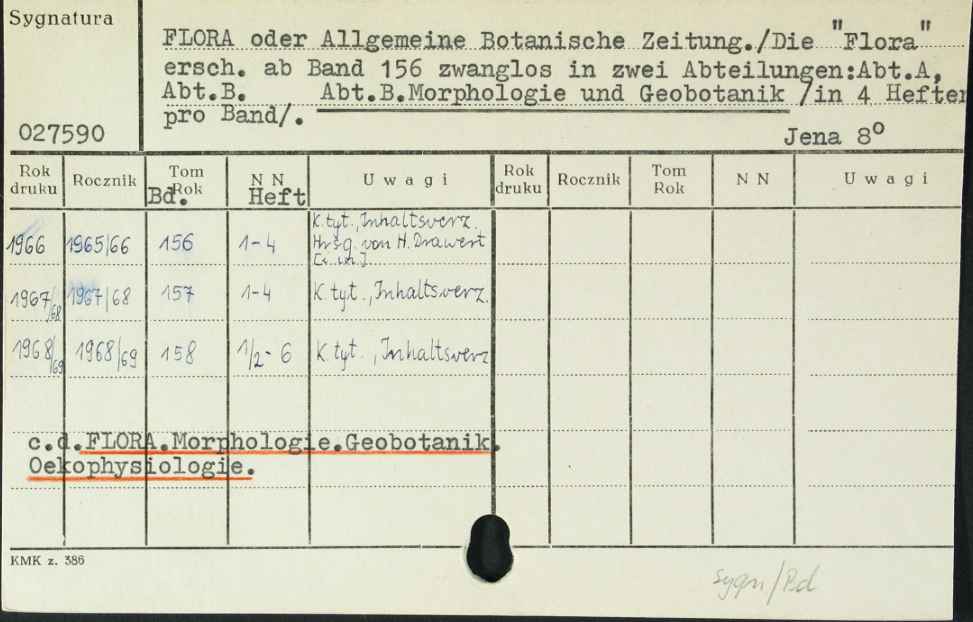 Sygnatura
027590
FLORA oder Allgemeine Botanische Zeitung./Die "Flora"
ersch. ab Band 156 zwanglos in zwei Abteilungen:Abt.A,
Abt.B. Abt.B.Morphologie und Geobotanik /in 4 Heften
pro Band/.
Jena 8º
Rok druku Rocznik Tom Rok Bd. N N Heft U w a g i Rok druku Rocznik Tom Rok N N U w a g i
1966 1965/66 156 1-4 K. tyt., Inhaltsverz.
Hrsg. von H. Drawert
[u. in.]
1967/68 1967/68 157 1-4 K. tyt., Inhaltsverz.
1968/69 1968/69 158 1/2-6 K. tyt., Inhaltsverz
c.d.FLORA.Morphologie.Geobotanik.
Oekophysiologie.
KMK z. 386
sygn/Bd